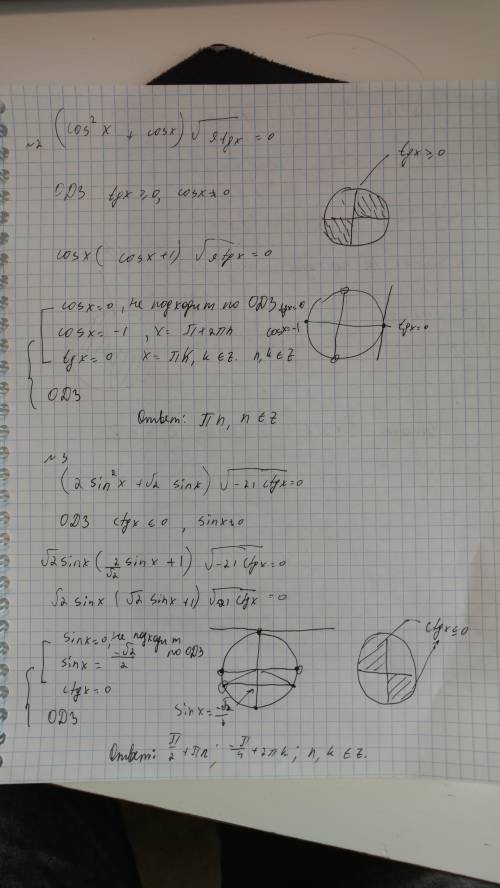 №2 (cos²x + cosx) √9tgx = 0
tgx ≥ 0
ОДЗ tgx ≥ 0, cosx ≠ 0
cosx ( cosx+1) √9tgx = 0
cosx = 0, не подходит по ОДЗ
tgx=0
cosx = -1 , x = π+2πn
cosx=-1
tgx=0
tgx = 0 x = πk, k ∈ Z. n, k ∈ Z
ОДЗ
Ответ: πn, n ∈ Z
№3
(2 sin²x + √2 sinx) √-21 ctgx = 0
ОДЗ ctgx ≤ 0 , sinx ≠ 0
√2 sinx ( 2/√2 sinx + 1) √-21 ctgx = 0
√2 sinx ( √2 sinx + 1) √-21 ctgx = 0
ctgx ≤ 0
sinx = 0, не подходит по ОДЗ
sinx = -√2/2
ctgx = 0
sinx = -√2/2
ОДЗ
Ответ: π/2 + πn; -π/4 + 2πk; n, k ∈ Z.